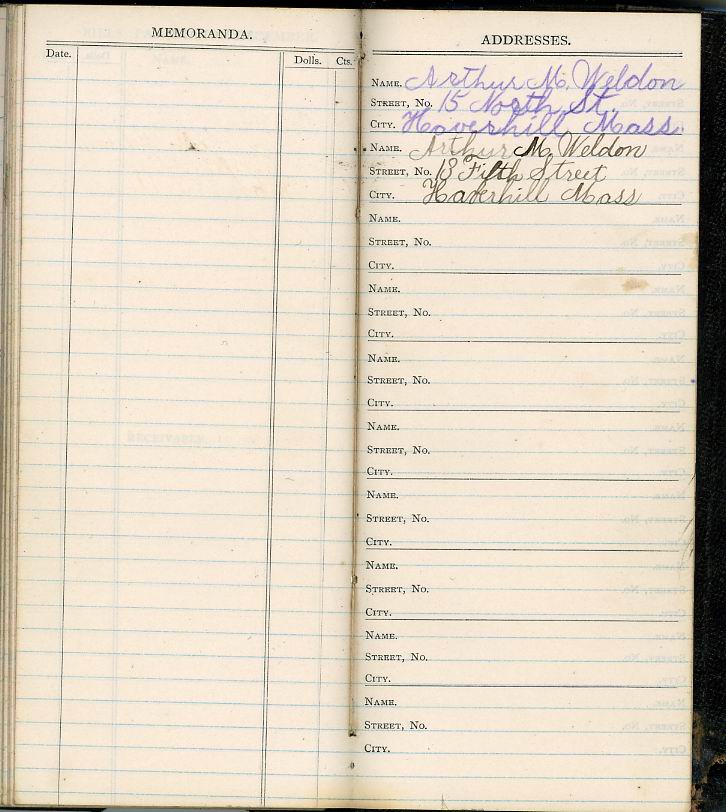 MEMORANDA.
Date. Dolls. Cts.
ADDRESSES.
NAME. Arthur M. Weldon
STREET, No. 15 North St.
CITY. Haverhill Mass.
NAME. Arthur M. Weldon
STREET, No. 18 Fifth Street
CITY. Haverhill Mass
NAME.
STREET, No.
CITY.
NAME.
STREET, No.
CITY.
NAME.
STREET, No.
CITY.
NAME.
STREET, No.
CITY.
NAME.
STREET, No.
CITY.
NAME.
STREET, No.
CITY.
NAME.
STREET, No.
CITY.
NAME.
STREET, No.
CITY.